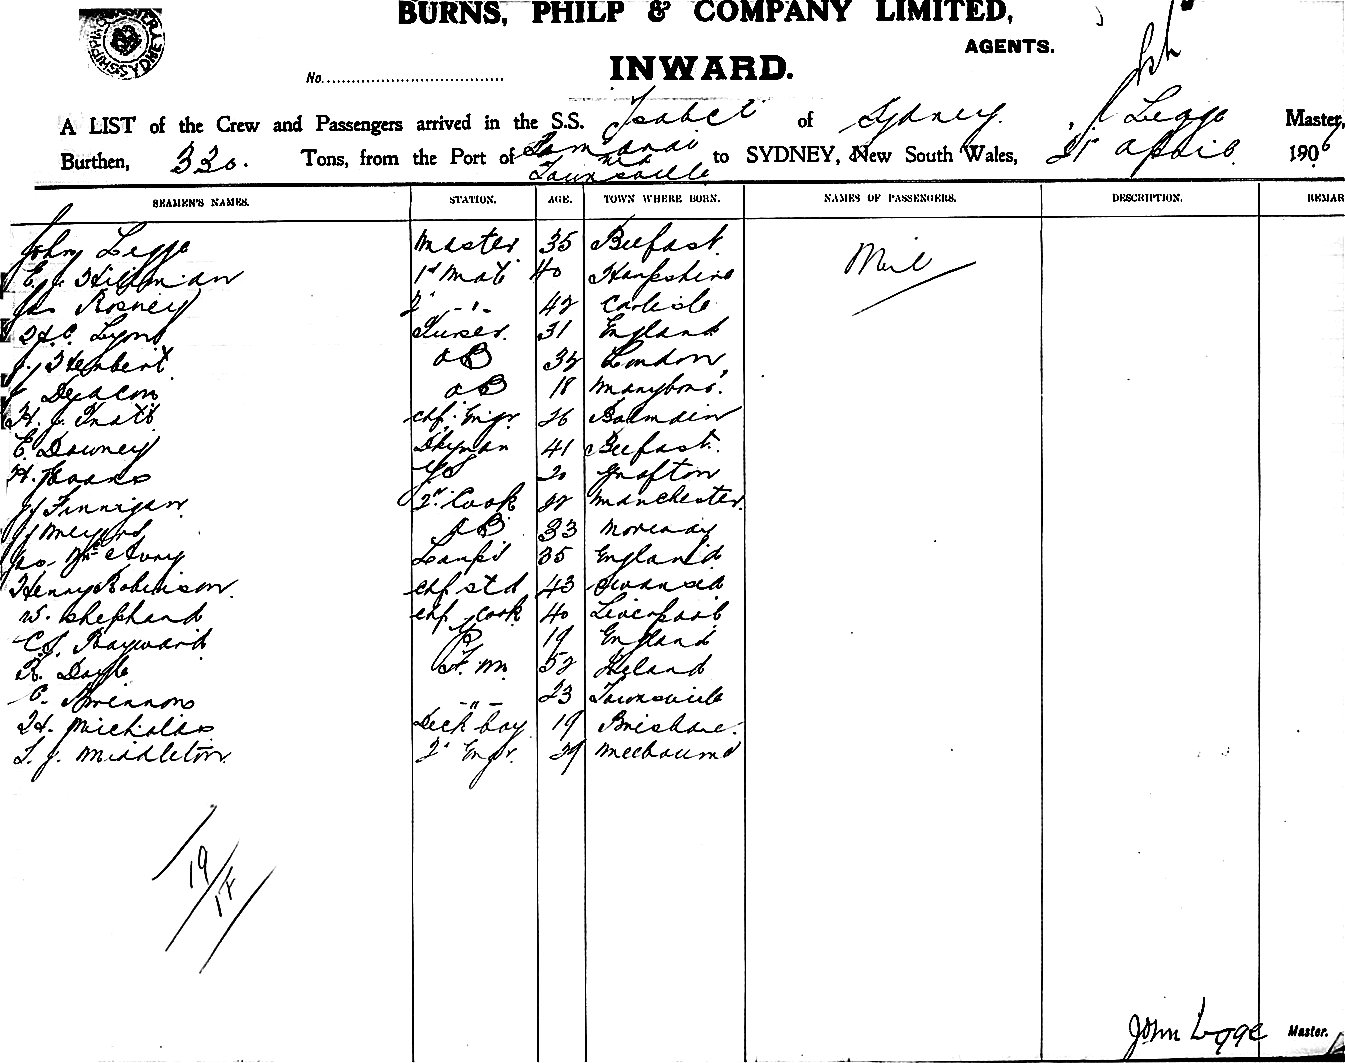 BURNS, PHILP & COMPANY LIMITED,
AGENTS.
No.
INWARD.
A LIST of the Crew and Passengers arrived in the S.S. Isabel of Sydney. J Legge Master,
Burthen, 330. Tons, from the Port of Samarai via Townsville to SYDNEY, New South Wales, 21st April 1906
SEAMEN'S NAMES. STATION. AGE. TOWN WHERE BORN. NAMES OF PASSENGERS. DESCRIPTION. REMAR
John Legge Master 35 Belfast. Nil
E. J. Hillman 1st Mate 40 Hampshire
Jas Rosney 2nd -"- 42 Carlisle
H. C. Lyons Purser. 31 England
J. Herbert AB 32 London
Deacon AB 18
H. J. chf. Engr. 26 Balmain
E. Downey Dkyman 41 Belfast.
H. 20 Grafton
J Finnigan 2nd Cook 22 Manchester.
J Meyers AB 33 Norway
Jas. Mc Avoy Lamps 35 England
Henry Robinson. chf std 43 Swansea
W. Shephard chf Cook 40 Liverpool
C. J. Hayward 19 England
R. Doyle F. M. 52 Ireland
-"- 23 Townsville
H. Nicholas Deck boy 19 Brisbane.
T. J. Middleton. 2nd Engr. 29 Melbourne
19/17
John Legge Master.